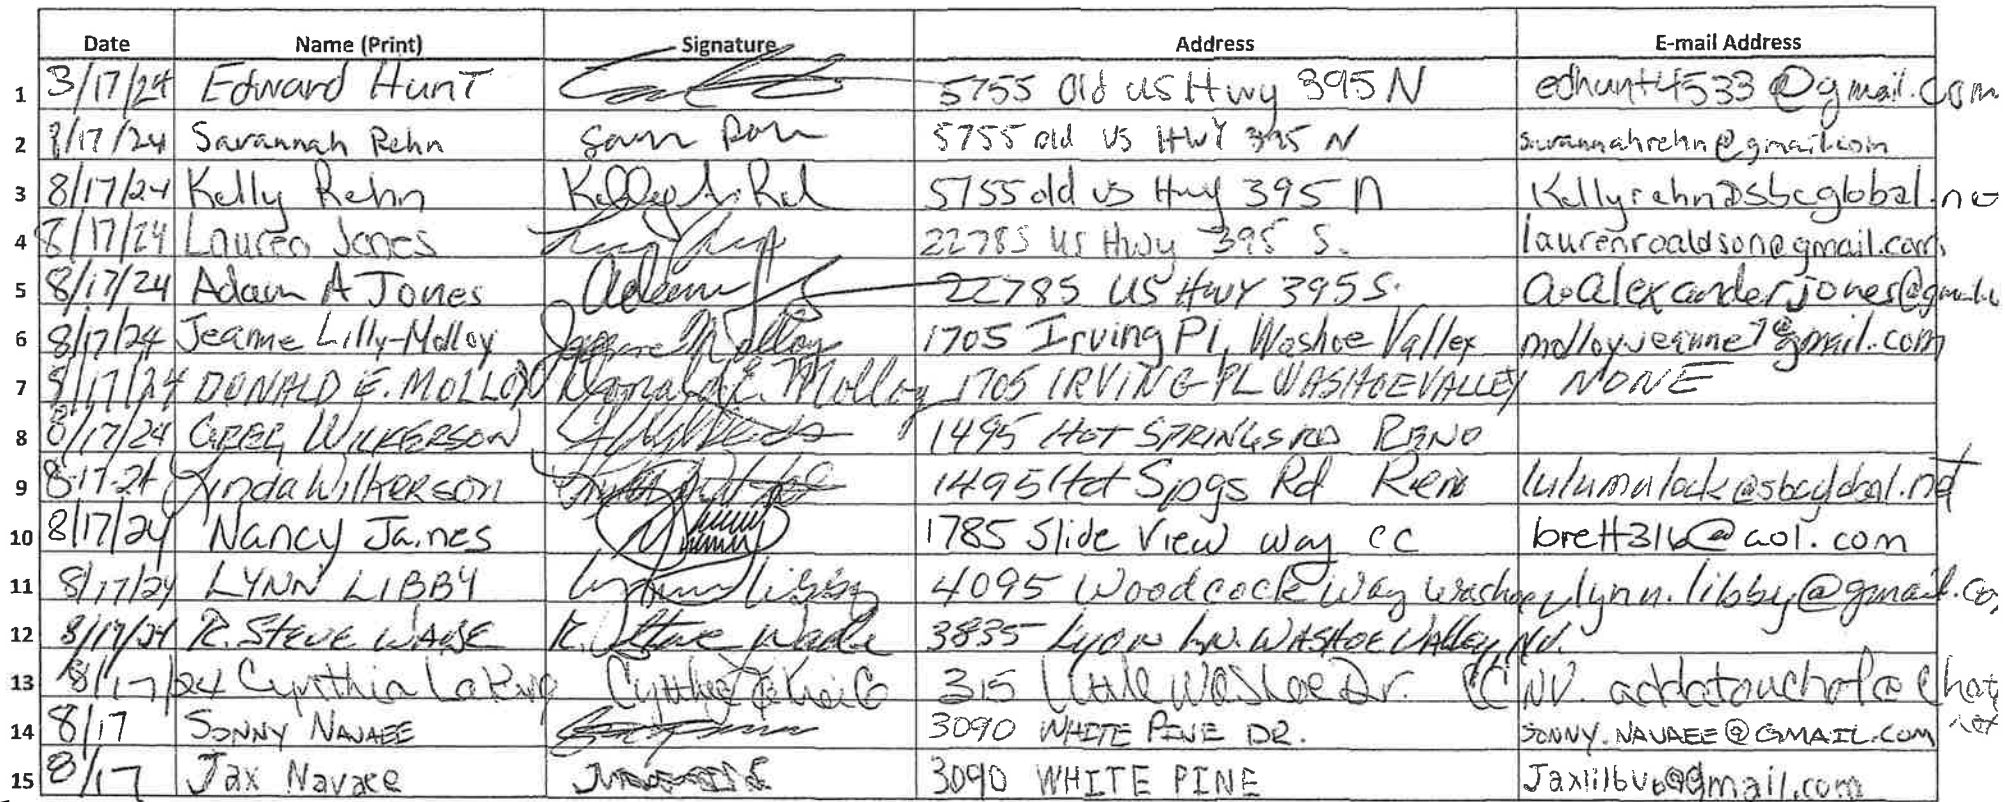 Date Name (Print) Signature Address E-mail Address
1 3/17/24 Edward Hunt 5755 Old US Hwy 395 N edhunt4533@gmail.com
2 8/17/24 Savannah Rehn 5755 old US HWY 395 N savannahrehn@gmail.com
3 8/17/24 Kelly Rehn 5755 old US Hwy 395 N Kellyrehn@sbcglobal.ne
4 8/17/24 Lauren Jones 22785 US Hwy 395 S. laurenroaldson@gmail.com
5 8/17/24 Adam A Jones Adam 22785 US HWY 395 S. a.alexanderjones@gmail
6 8/17/24 Jeanne Lilly-Molloy Jeanne Molloy 1705 Irving Pl, Washoe Valley molloyjeanne7@gmail.com
7 8/17/24 DONALD E. MOLLOY Donald E. Molloy 1705 IRVING PL WASHOE VALLEY NONE
8 8/17/24 GREG WILKERSON 1495 HOT SPRINGS RD RENO
9 8-17-24 Linda Wilkerson 1495 Hot Spgs Rd Reno lulumalock@sbcglobal.net
10 8/17/24 Nancy Jaines 1785 Slide View Way CC brett316@aol.com
11 8/17/24 LYNN LIBBY Lynn Libby 4095 Woodcock Way Washoe lynn.libby@gmail.co
12 8/17/24 R. STEVE WADE R. Steve Wade 3835 Lyon Ln. WASHOE VAlley NV.
13 8/17/24 Cynthia 315 Little Washoe Dr. CC NV.
14 8/17 SONNY NAVAEE 3090 WHITE PINE DR. SONNY.NAVAEE@GMAIL.COM
15 8/17 Jax Navaee 3090 WHITE PINE